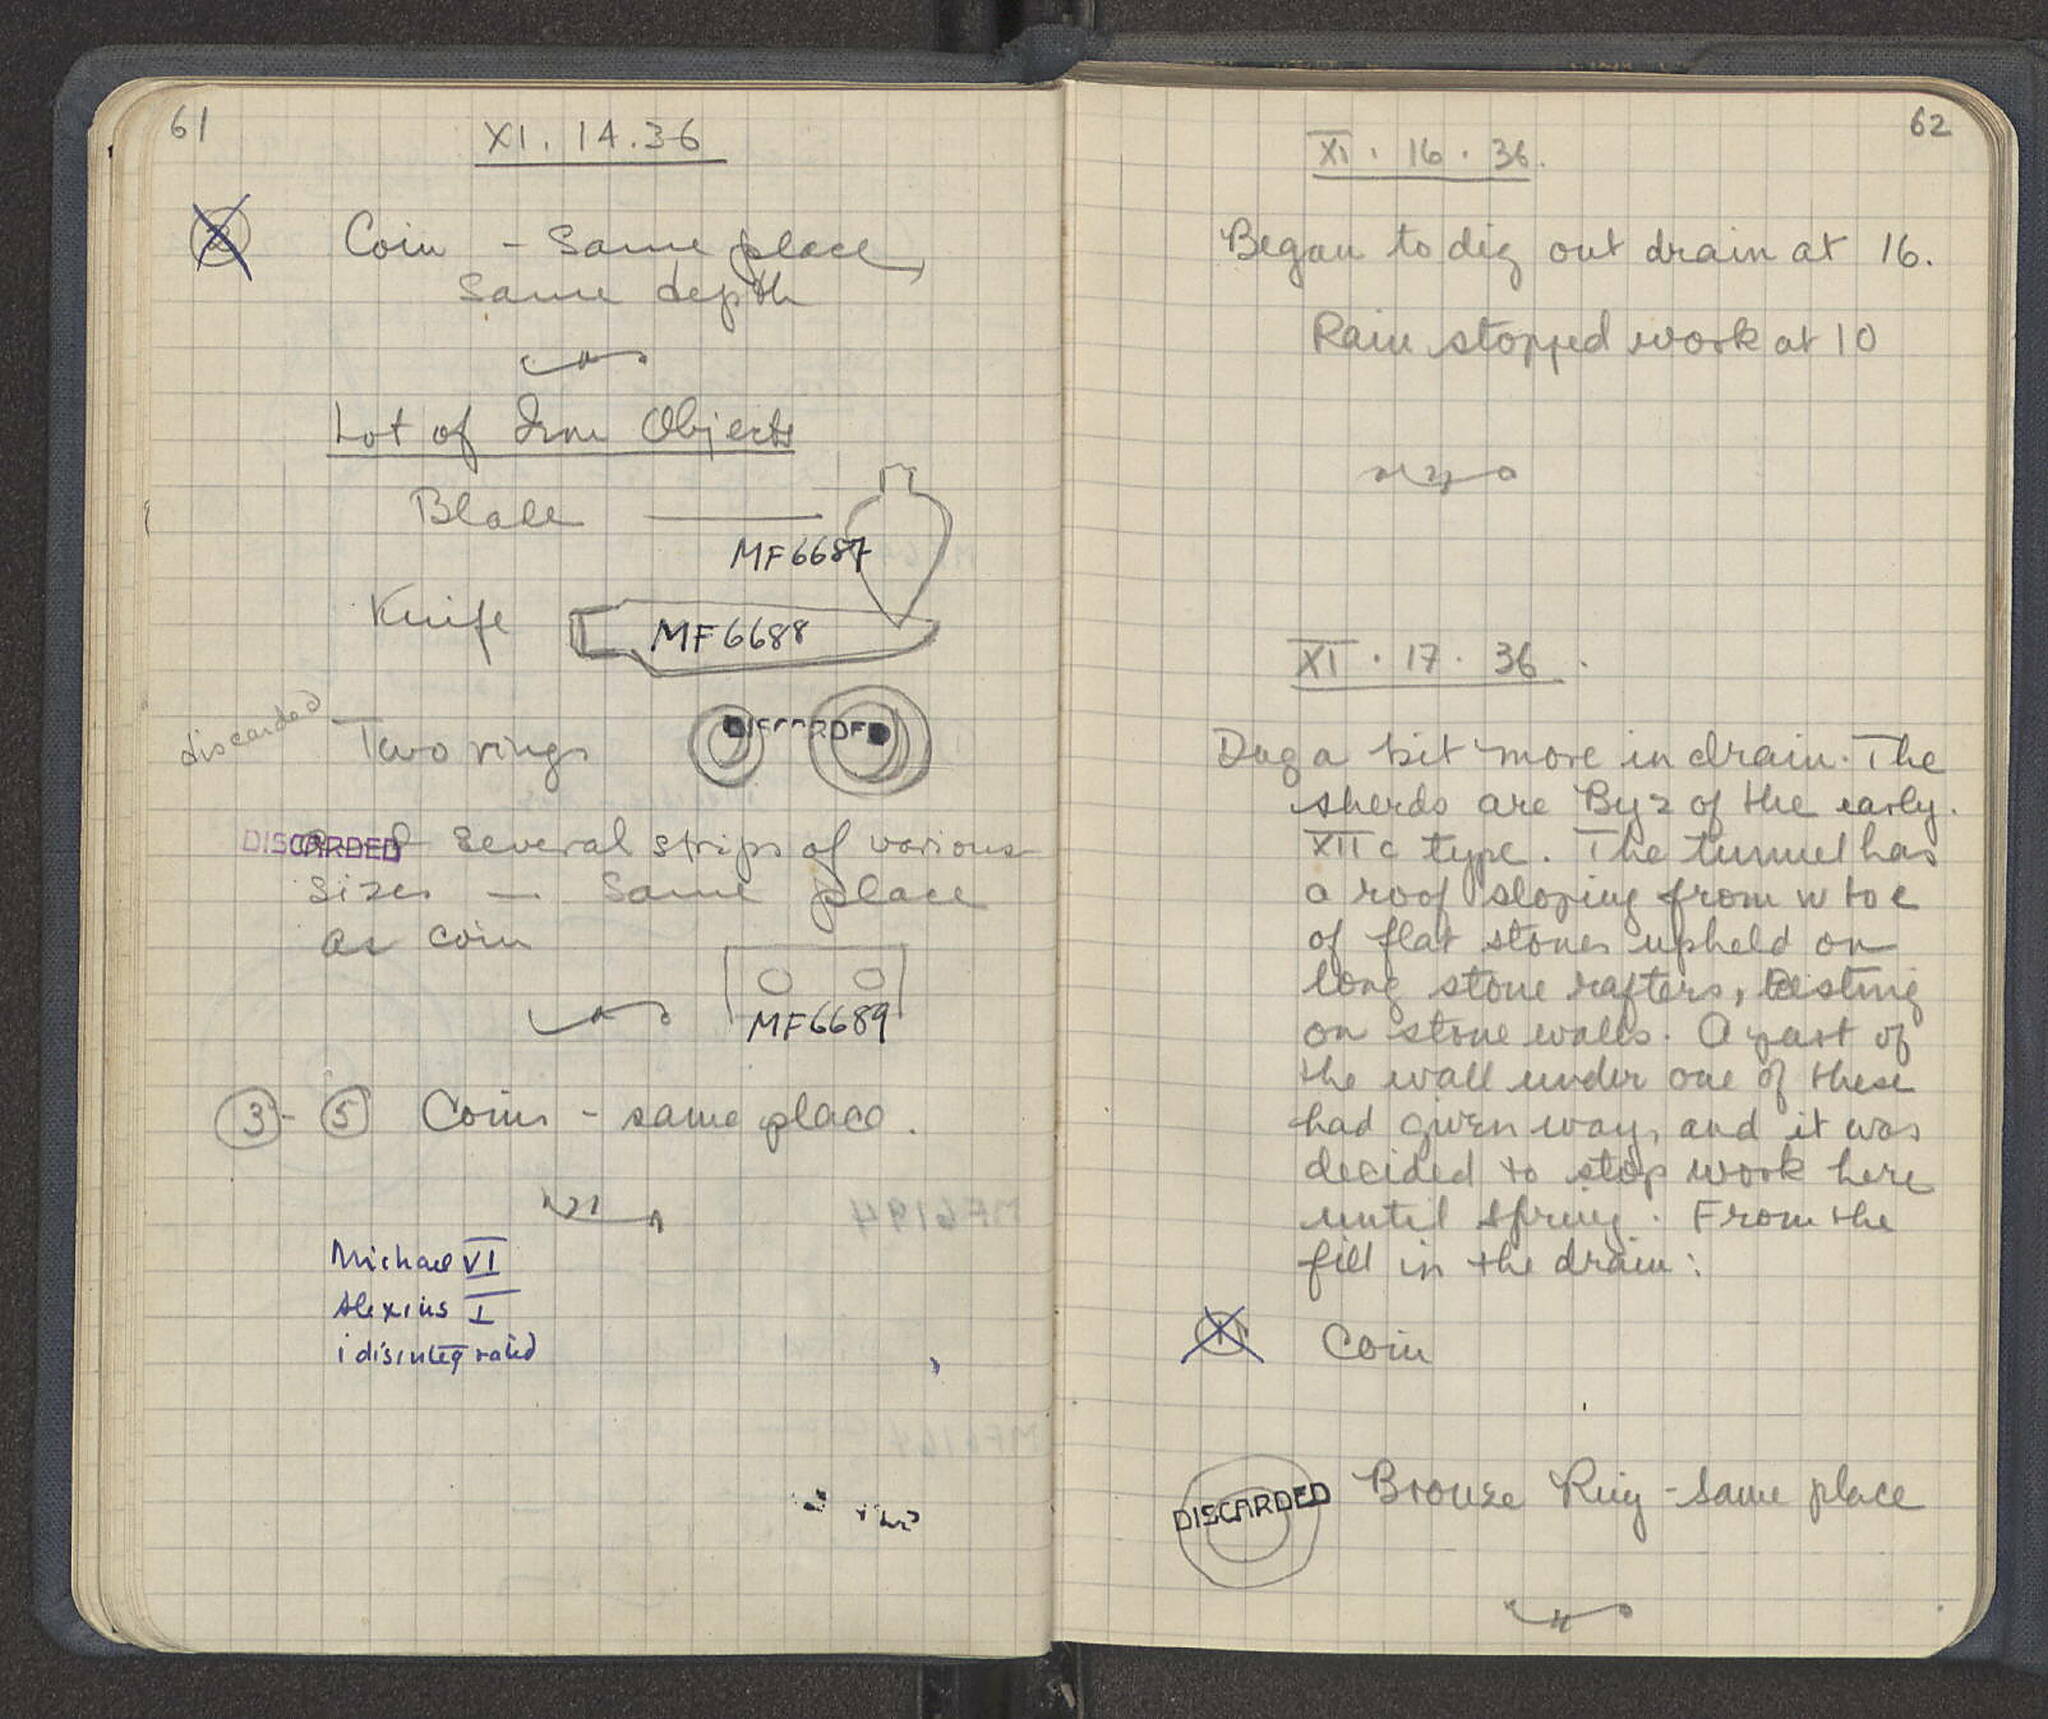 61
XI. 14. 36
2 Coin - Same place,
Same depth
Lot of Iron Objects
Blade
MF6687
Knife
MF6688
discarded Two rings
DISCARDED
DISCARDED several strips of various
sizes - Same place
as coin
MF6689
3 - 5 Coins - same place.
Michael VI
Alexius I
1 disintegrated
62
XI. 16. 36.
Began to dig out drain at 16.
Rain stopped work at 10
XI. 17. 36.
Dug a bit more in drain. The
sherds are Byz of the early
XII c type. The tunnel has
a roof sloping from w to e
of flat stones upheld on
long stone rafters, resting
on stone walls. A part of
the wall under one of these
had given way, and it was
decided to stop work here
until spring. From the
fill in the drain:
1 Coin
DISCARDED Bronze Ring - same place